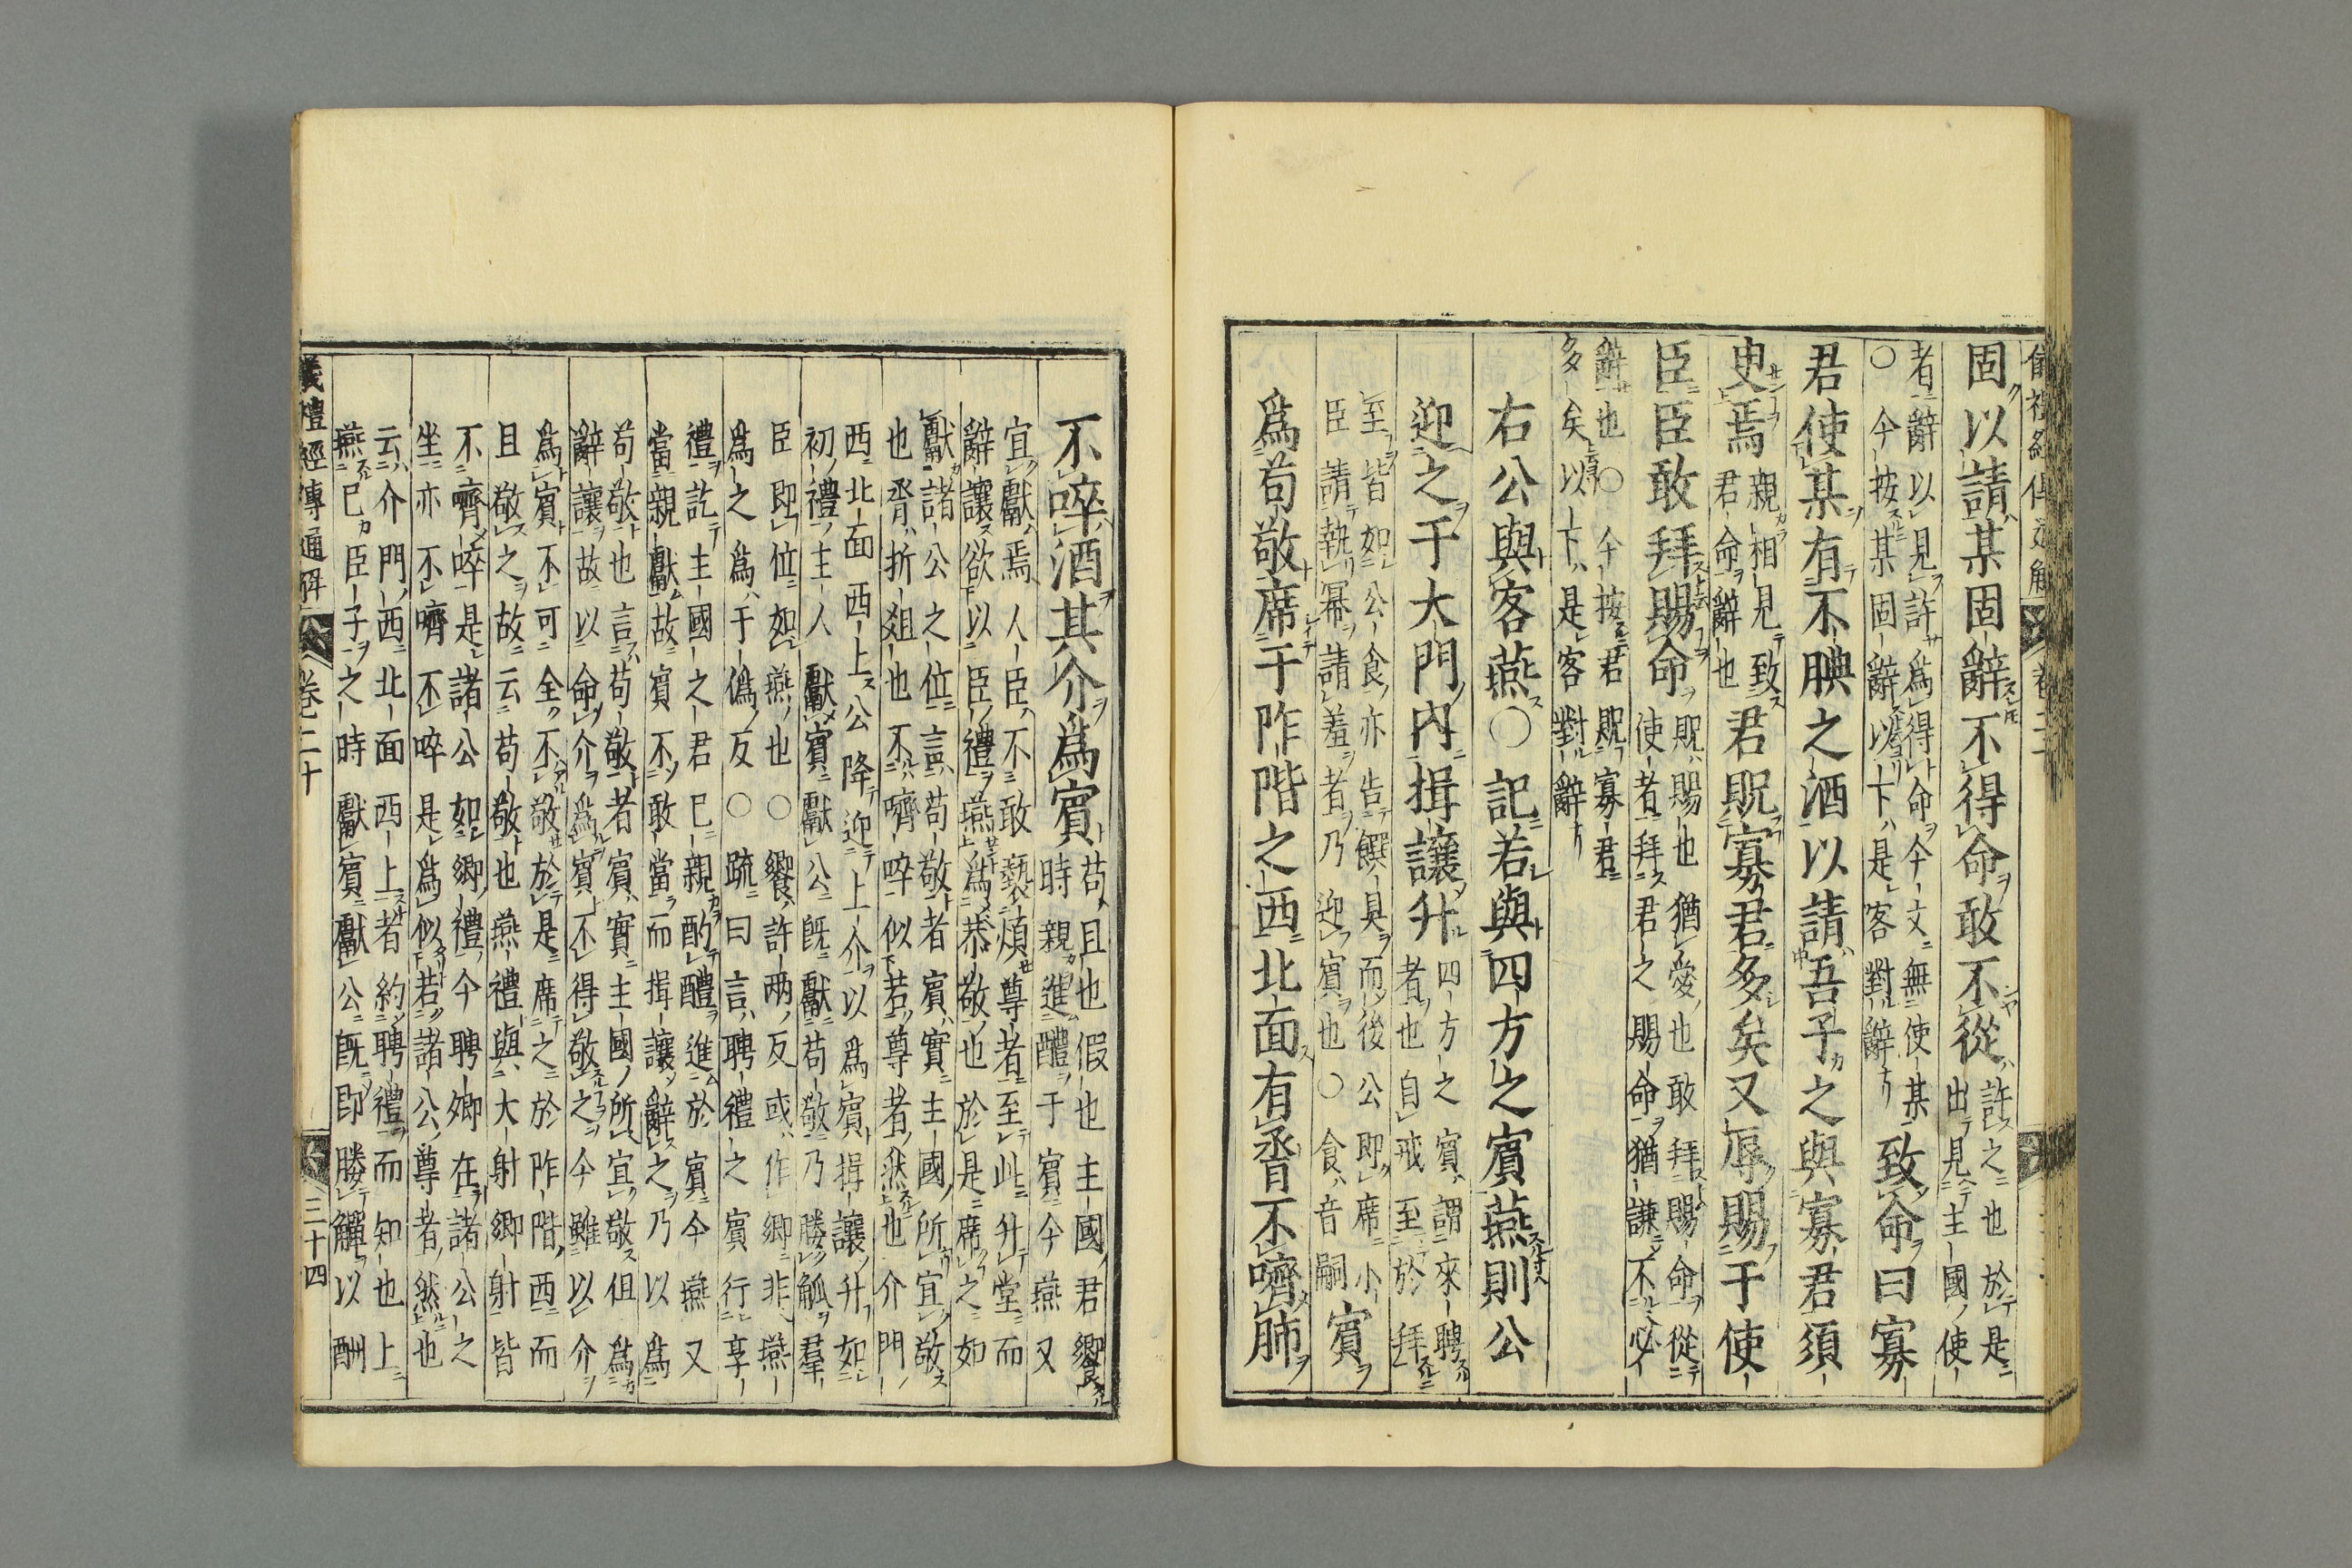 儀禮經傳通解 卷二十
固以請某固辭不得命敢不從
許之也於是
出見主國使
者辭以見許爲得命今文無使某
○今按某固辭以下是客對辭
致命曰寡
君使某有不腆之酒以請吾子之與寡君須
臾焉
親相見致
君命辭也
君貺寡君多矣又辱賜于使
臣臣敢拜賜命
貺賜也猶愛也敢拜賜命從
使者拜君之賜命猶謙不必
辭也○今按君貺寡君
多矣以下是客對辭
右公與客燕○記若與四方之賓燕則公
迎之于大門內揖讓升
四方之賓謂來聘
者也自戒至於拜
至皆如公食亦告饌具而後公即席小
臣請執冪請羞者乃迎賓也○食音嗣
賓
爲苟敬席于阼階之西北面有脀不嚌肺
不啐酒其介爲賓
苟且也假也主國君饗
時親進醴于賓今燕又
宜獻焉人臣不敢褻煩尊者至此升堂而
辭讓欲以臣禮燕爲恭敬也於是席之如
獻諸公之位言苟敬者賓實主國所宜敬
也脀折俎也不嚌啐似若尊者然也介門
西北面西上公降迎上介以爲賓揖讓升如
初禮主人獻賓獻公既獻苟敬乃媵觚羣
臣即位如燕也○饗許兩反或作鄉非燕
爲之爲于僞反○疏曰言聘禮之賓行享
禮訖主國之君已親酌醴進於賓今燕又
當親獻故賓不敢當而揖讓辭之乃以爲
苟敬也言苟敬者賓實主國所宜敬但爲
辭讓故以命介爲賓不得敬之今雖以介
爲賓不可全不敬於是席之於阼階西而
且敬之故云苟敬也燕禮與大射卿射皆
不嚌啐是諸公如卿禮今聘卿在諸公之
坐亦不嚌不啐是爲似若諸公尊者然也
云介門西北面西上者約聘禮而知也上
燕已臣子之時獻賓獻公既即媵觶以酬
儀禮經傳通解 卷二十 三十四